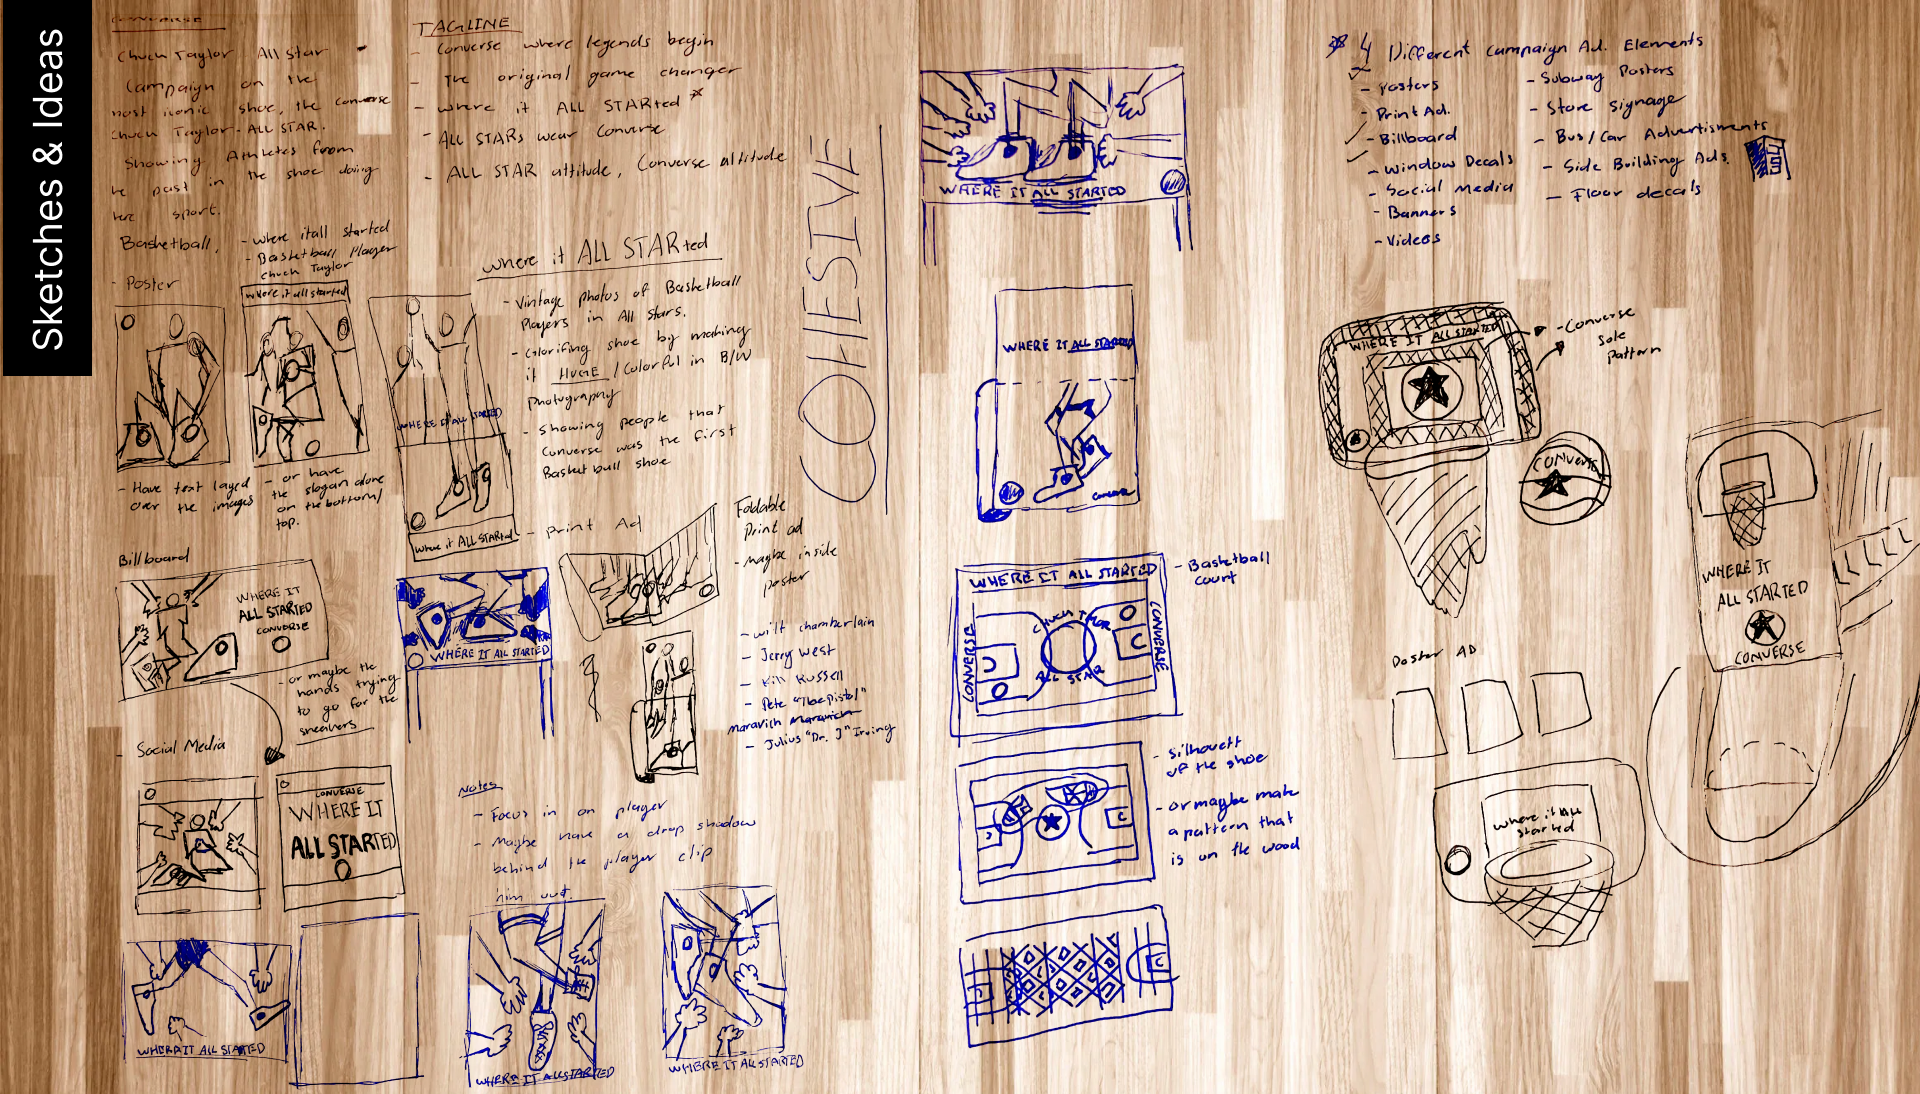 Sketches & Ideas
CONVERSE
Chuck Taylor All Star
Campaign on the
most iconic shoe, the converse
Chuck Taylor - ALL STAR.
Showing Athletes from
he past in the shoe doing
sport.
Basketball,
- Poster
- where itall started
- Basketball Player
chuck Taylor
where it all started
WHERE IT ALL STARTED
where it ALL STARted
- Have text layed
over the images
- or have
the slogan alone
on the bottom/
top.
TAGLINE
- Converse where legends begin
- The original game changer
- where it ALL STARted
- ALL STARs wear Converse
- ALL STAR attitude, Converse altitude
where it ALL STARted
- Vintage photos of Basketball
Players in All Stars.
- Glorifing shoe by making
it HUGE / Colorful in B/W
Photography
- Showing people that
Converse was the first
Basketball shoe
- Print Ad
Foldable
Print ad
- maybe inside
poster
- Wilt chamberlain
- Jerry West
- Bill Russell
- Pete "The Pistol"
maravich
- Julius "Dr. J" Irving
Billboard
WHERE IT
ALL STARTED
CONVERSE
- or maybe the
hands trying
to go for the
sneakers
WHERE IT ALL STARTED
- Social Media
CONVERSE
WHERE IT
ALL STARTED
Notes
- Focus in on player
- Maybe have a drop shadow
behind the player clip
him out.
WHERE IT ALL STARTED
WHERE IT ALL STARTED
WHERE IT ALL STARTED
COHESIVE
WHERE IT ALL STARTED
WHERE IT ALL STARTED
Converse
WHERE IT ALL STARTED
CONVERSE
CHUCK TAYLOR
ALL STAR
CONVERSE
C
- Basketball
court
- silhouett
of the shoe
- or maybe make
a pattern that
is on the wood
C
C
4 Different Campaign Ad. Elements
- Posters
- Print Ad.
- Billboard
- Window Decals
- Social Media
- Banners
- Videos
- Subway Posters
- Store signage
- Bus/Car Advertisments
- Side Building Ads.
- Floor decals
WHERE IT ALL STARTED
- Converse
Sole
pattern
CONVERSE
WHERE IT
ALL STARTED
CONVERSE
Poster AD
where it All
started